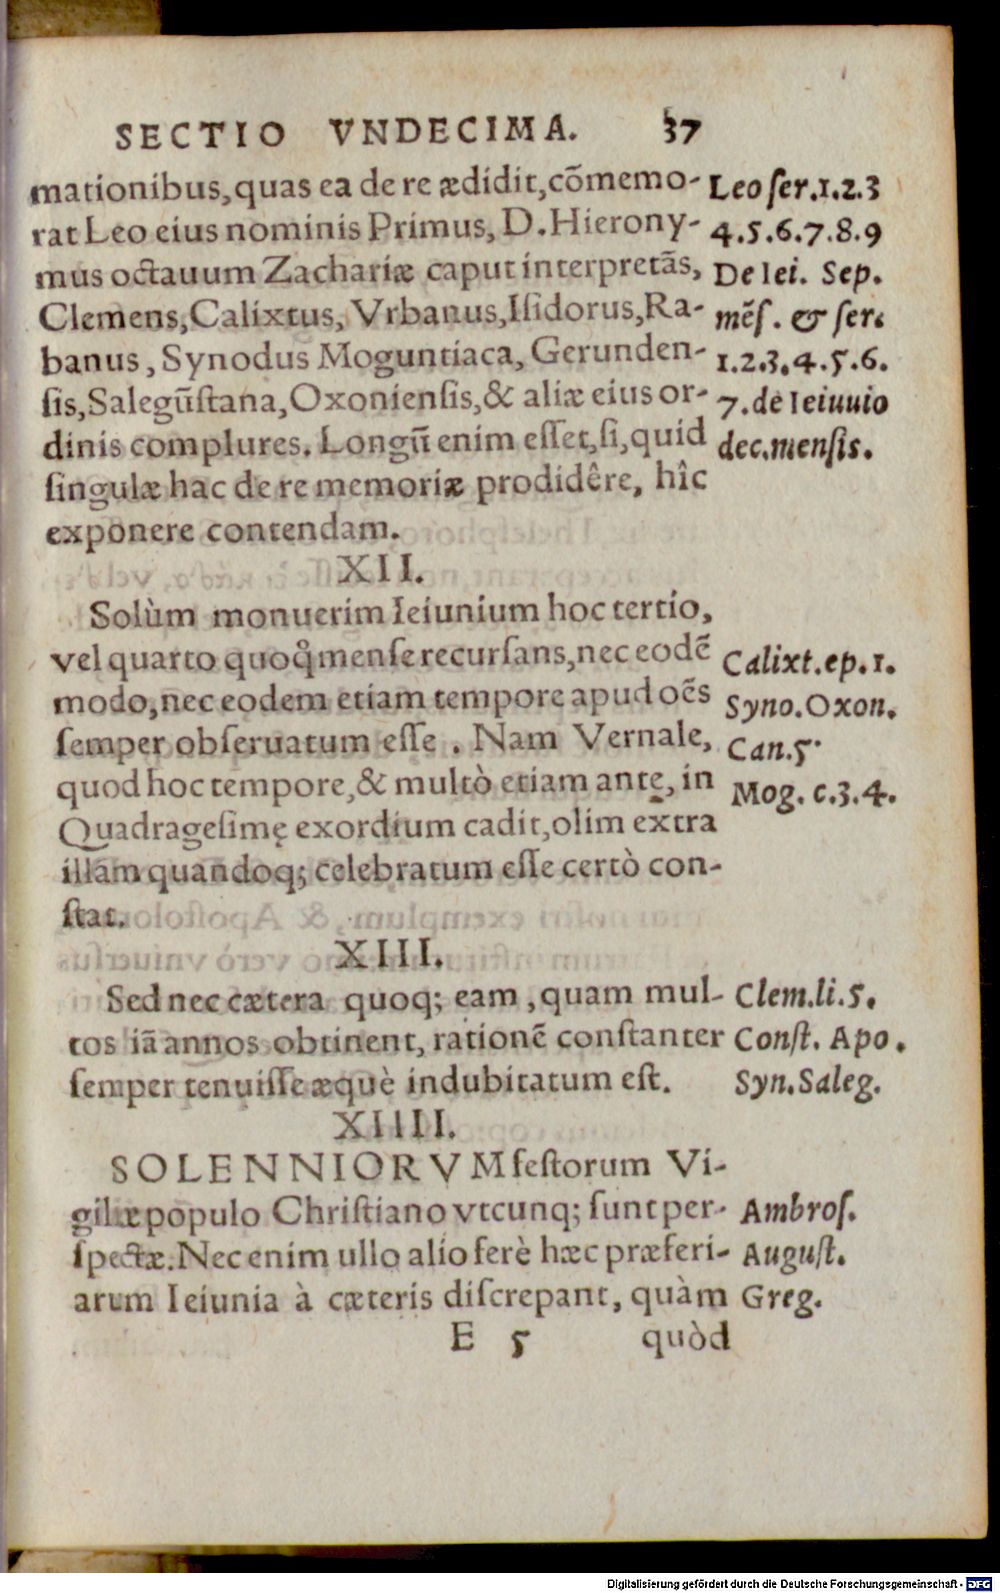 SECTIO VNDECIMA. 37
mationibus, quas ea de re ædidit, cõmemo-
rat Leo eius nominis Primus, D. Hierony-
mus octauum Zachariæ caput interpretãs,
Clemens, Calixtus, Vrbanus, Isidorus, Ra-
banus, Synodus Moguntiaca, Gerunden-
sis, Salegũstana, Oxoniensis, & aliæ eius or-
dinis complures. Longũ enim esset, si, quid
singulæ hac de re memoriæ prodidêre, hîc
exponere contendam.
Leo ser. 1. 2. 3
4. 5. 6. 7. 8. 9
De Iei. Sep.
mẽs. & ser.
1. 2. 3. 4. 5. 6.
7. de Ieiuuio
dec. mensis.
XII.
Solùm monuerim Ieiunium hoc tertio,
vel quarto quoq̃ mense recursans, nec eodẽ
modo, nec eodem etiam tempore apud oẽs
semper obseruatum esse. Nam Vernale,
quod hoc tempore, & multò etiam ante, in
Quadragesimę exordium cadit, olim extra
illam quandoq; celebratum esse certò con-
stat.
Calixt. ep. 1.
Syno. Oxon.
Can. 5.
Mog. c. 3. 4.
XIII.
Sed nec cætera quoq; eam, quam mul-
tos iã annos obtinent, rationẽ constanter
semper tenuisse æquè indubitatum est.
Clem. li. 5.
Const. Apo.
Syn. Saleg.
XIIII.
SOLENNIORVM festorum Vi-
giliæ populo Christiano vtcunq; sunt per-
spectæ. Nec enim ullo alio ferè hæc præferi-
arum Ieiunia à cæteris discrepant, quàm
Ambros.
August.
Greg.
E 5 quòd
Digitalisierung gefördert durch die Deutsche Forschungsgemeinschaft - DFG